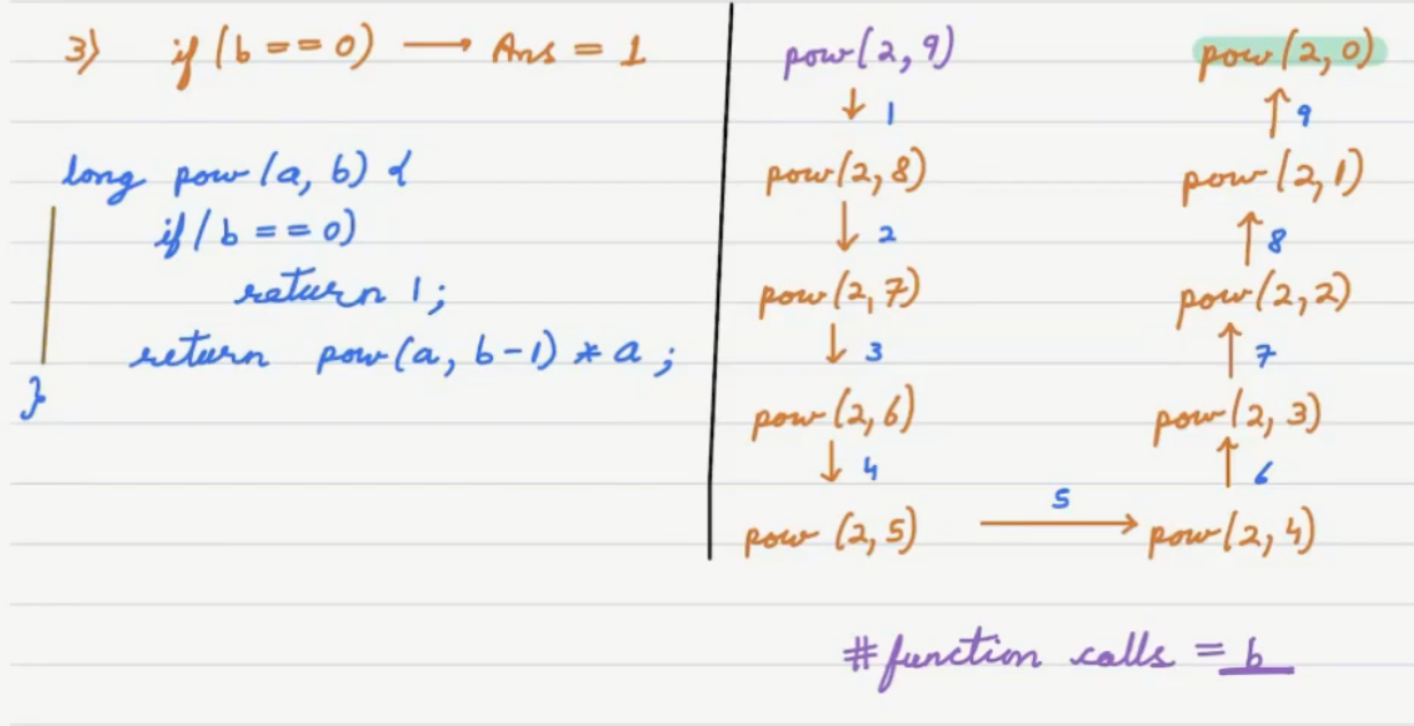 3) if (b == 0) → Ans = 1
long pow (a, b) {
if (b == 0)
return 1;
return pow(a, b-1) * a;
}
pow(2, 9)
↓ 1
pow(2, 8)
↓ 2
pow(2, 7)
↓ 3
pow(2, 6)
↓ 4
pow (2, 5)
→ 5
pow(2, 4)
↑ 6
pow(2, 3)
↑ 7
pow(2, 2)
↑ 8
pow (2, 1)
↑ 9
pow(2, 0)
#function calls = b